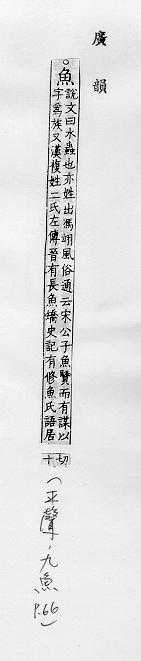 廣韻
。魚
說文曰水蟲也亦姓出馮翊風俗通云宋公子魚賢而有謀以
字爲族又漢複姓二氏左傳晉有長魚矯史記有修魚氏語居
切十
(平聲·九魚
P.66)